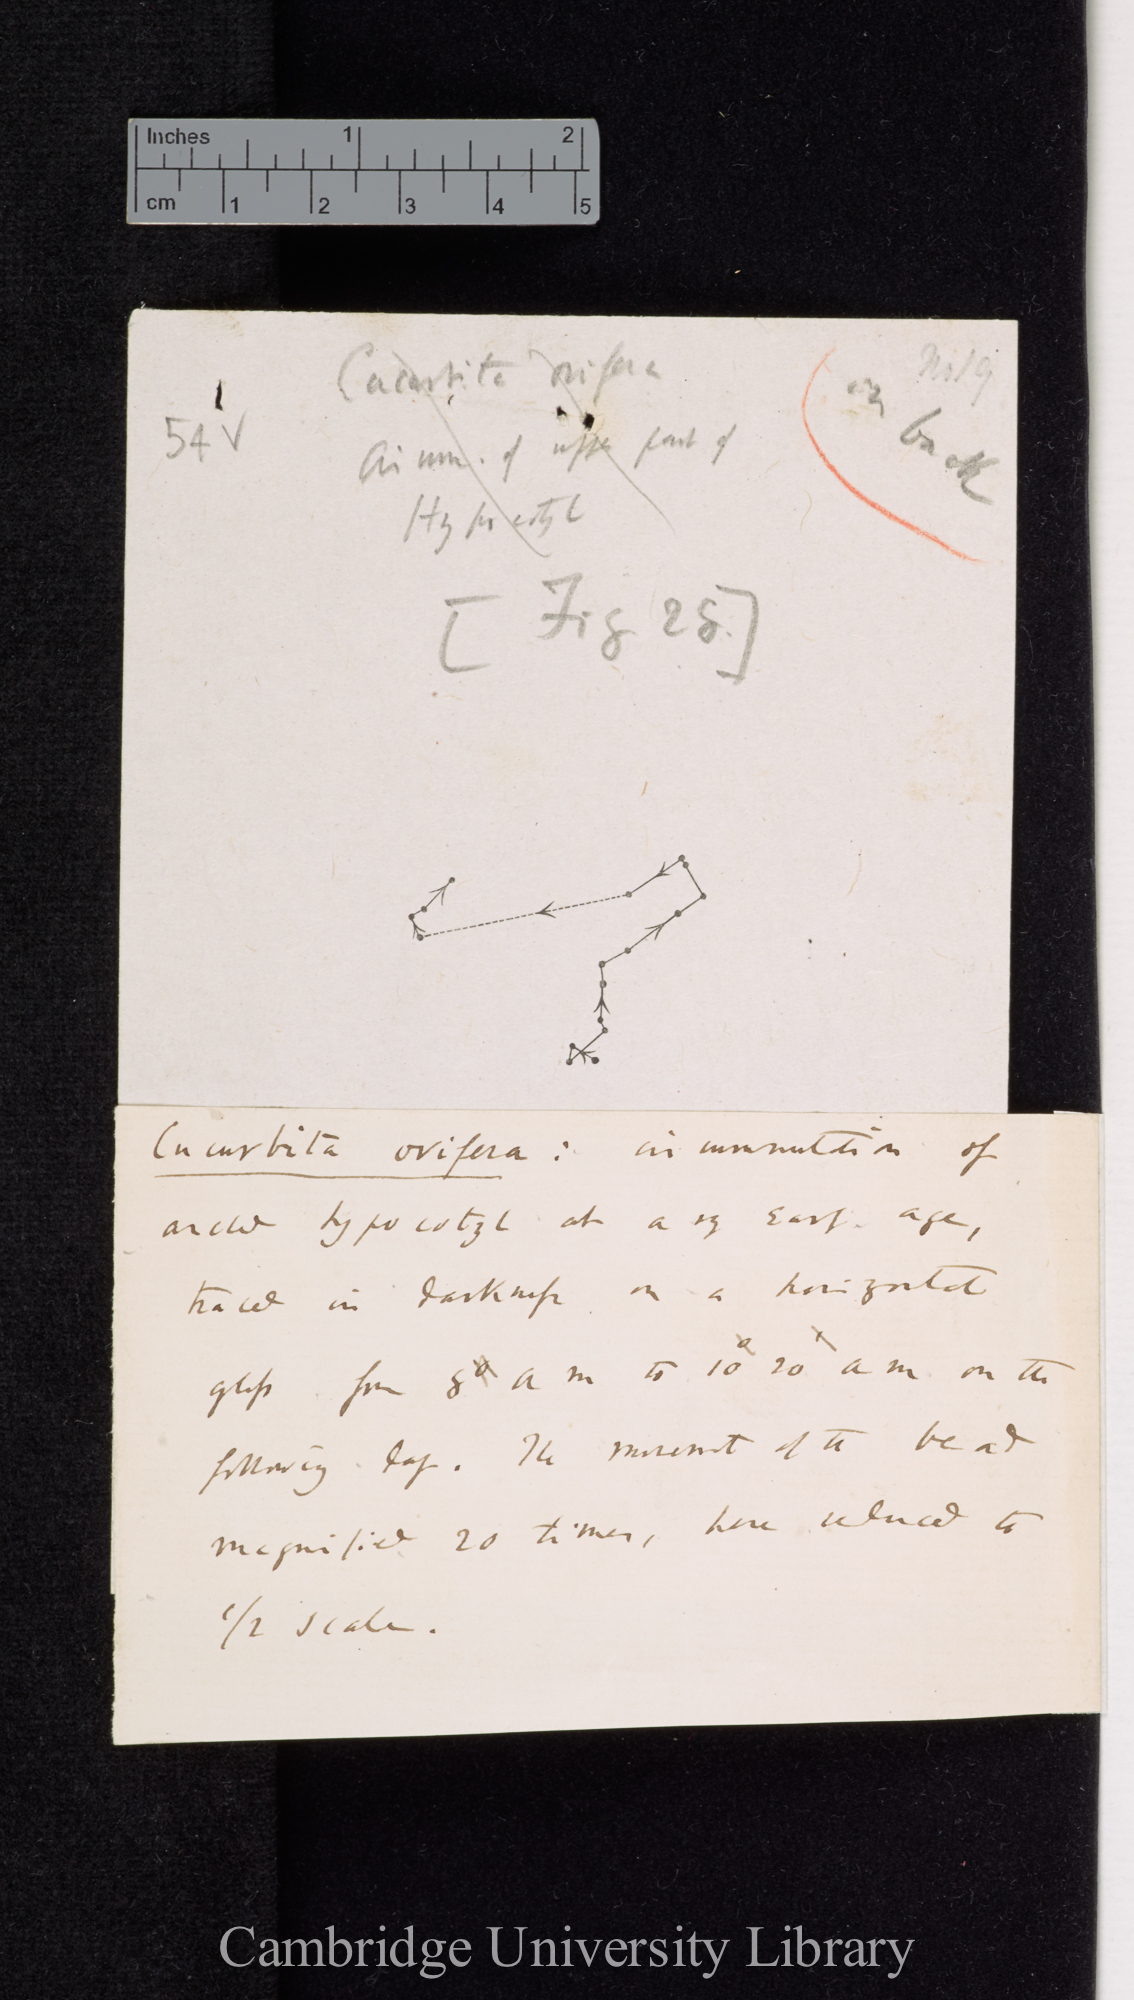 Inches 1 2
cm 1 2 3 4 5
54 V
Cucurbita ovifera
Circum. of upper part of
Hypocotyl
on
back
[Fig 28.]
Cucurbita ovifera: circumnutation of
arched hypocotyl at a vy early age,
traced in darkness on a horizontal
glass from 8 a m to 10 20 a m on the
following day. The movement of the bead
magnified 20 times, here reduced to
1/2 scale.
Cambridge University Library